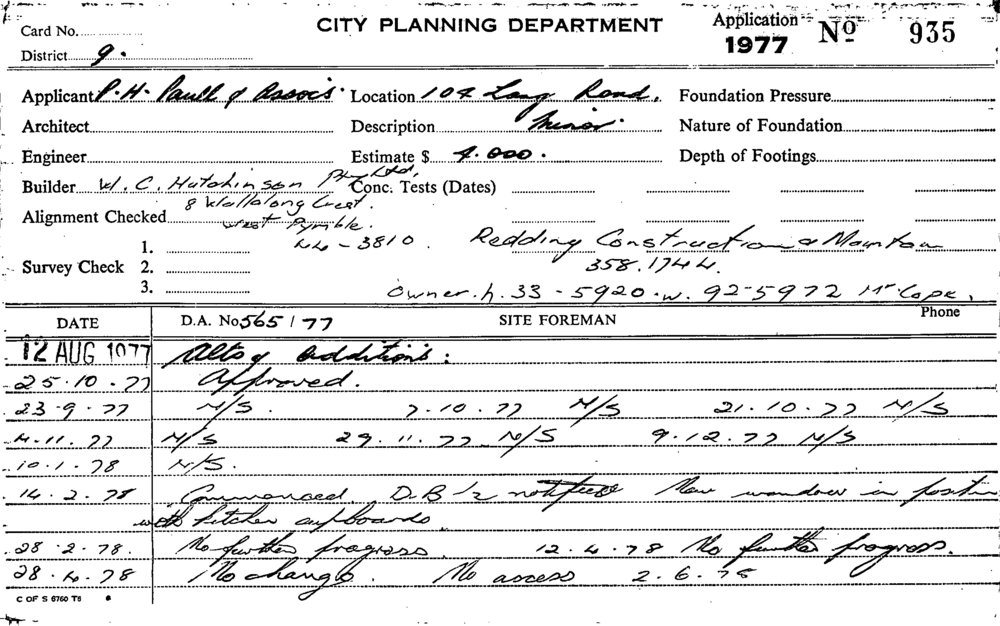 Card No. CITY PLANNING DEPARTMENT Application Nº 935
1977
District 9.
Applicant P.H. Paull & Assocs. Location 104 Lang Road. Foundation Pressure
Architect Description Minor. Nature of Foundation
Engineer Estimate $ 4.000. Depth of Footings
Builder W.C. Hutchinson Pty Ltd, Conc. Tests (Dates)
8 Wallalong Crest.
Alignment Checked West Pymble.
44-3810. Redding Construction & Mountain
1.
Survey Check 2. 358.1744.
3. Owner. h. 33-5920. w. 92-5972 Mr Cope.
DATE D.A. No 565/77 SITE FOREMAN Phone
12 AUG 1977 Alts & additions:
25.10.77 Approved.
23.9.77 N/S. 7.10.77 N/S 21.10.77 N/S
4.11.77 N/S 29.11.77 N/S 9.12.77 N/S
10.1.78 N/S.
14.2.78 Commenced. D.B 1/2 notified New window in position
with kitchen cupboards.
28.2.78. No further progress. 12.4.78 No further progress.
28.4.78 No change. No access 2.6.78
C OF S 6760 T8